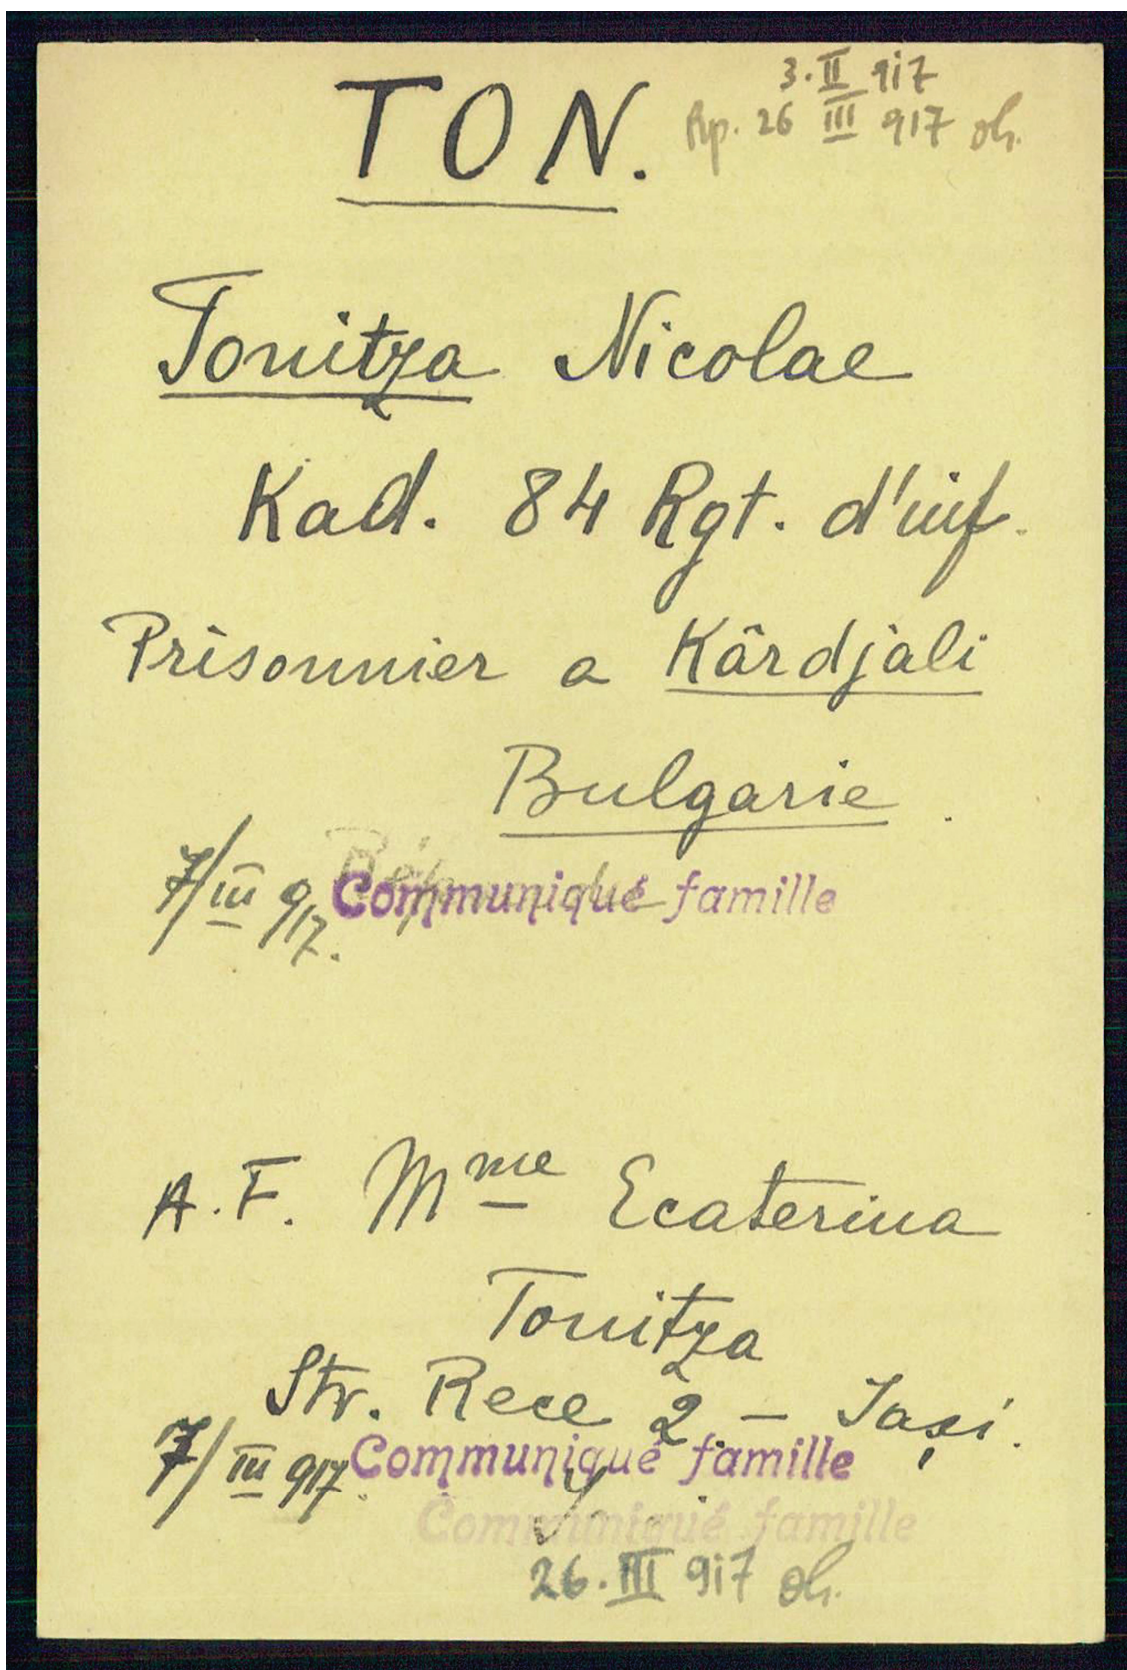 3. II 917
TON.
Rp. 26 III 917 oh.
Tonitza Nicolae
Kad. 84 Rgt. d'inf.
Prisonnier a Kârdjali
Bulgarie.
7/III 917. Communiqué famille
A.F. Mme Ecaterina
Tonitza
Str. Rece 2 – Iași.
7/III 917. Communiqué famille
Communiqué famille
26. III 917 oh.